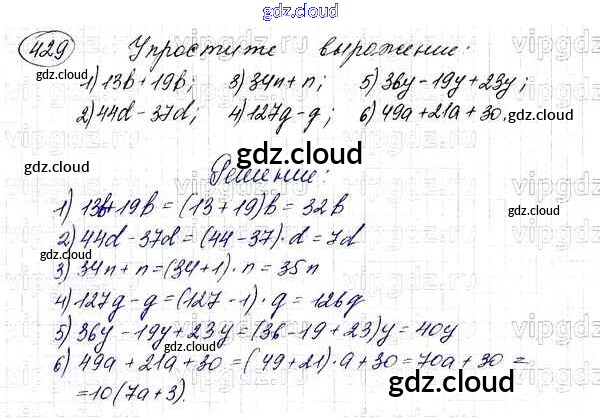 gdz.cloud
429 Упростите выражение:
1) 13b + 19b; 3) 34n + n; 5) 36y - 19y + 23y;
gdz.cloud gdz.cloud gdz.cloud
2) 44d - 37d; 4) 127g - g; 6) 49a + 21a + 30.
gdz.cloud
gdz.cloud
Решение:
gdz.cloud
1) 13b + 19b = (13 + 19)b = 32b
gdz.cloud
2) 44d - 37d = (44 - 37) · d = 7d
gdz.cloud
3) 34n + n = (34 + 1) · n = 35n
4) 127g - g = (127 - 1) · g = 126g
gdz.cloud
5) 36y - 19y + 23y = (36 - 19 + 23)y = 40y
gdz.cloud
6) 49a + 21a + 30 = (49 + 21) · a + 30 = 70a + 30 =
gdz.cloud
= 10(7a + 3).
gdz.cloud